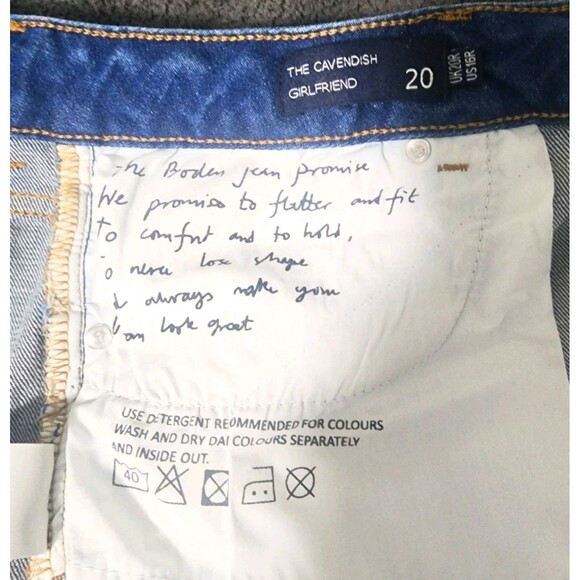 THE CAVENDISH
GIRLFRIEND
20
UK20R
US16R
The Boden jean promise
We promise to flatter and fit
To comfort and to hold,
To never lose shape
always make your
look great
USE DETERGENT RECOMMENDED FOR COLOURS
WASH AND DRY DARK COLOURS SEPARATELY
AND INSIDE OUT.
40